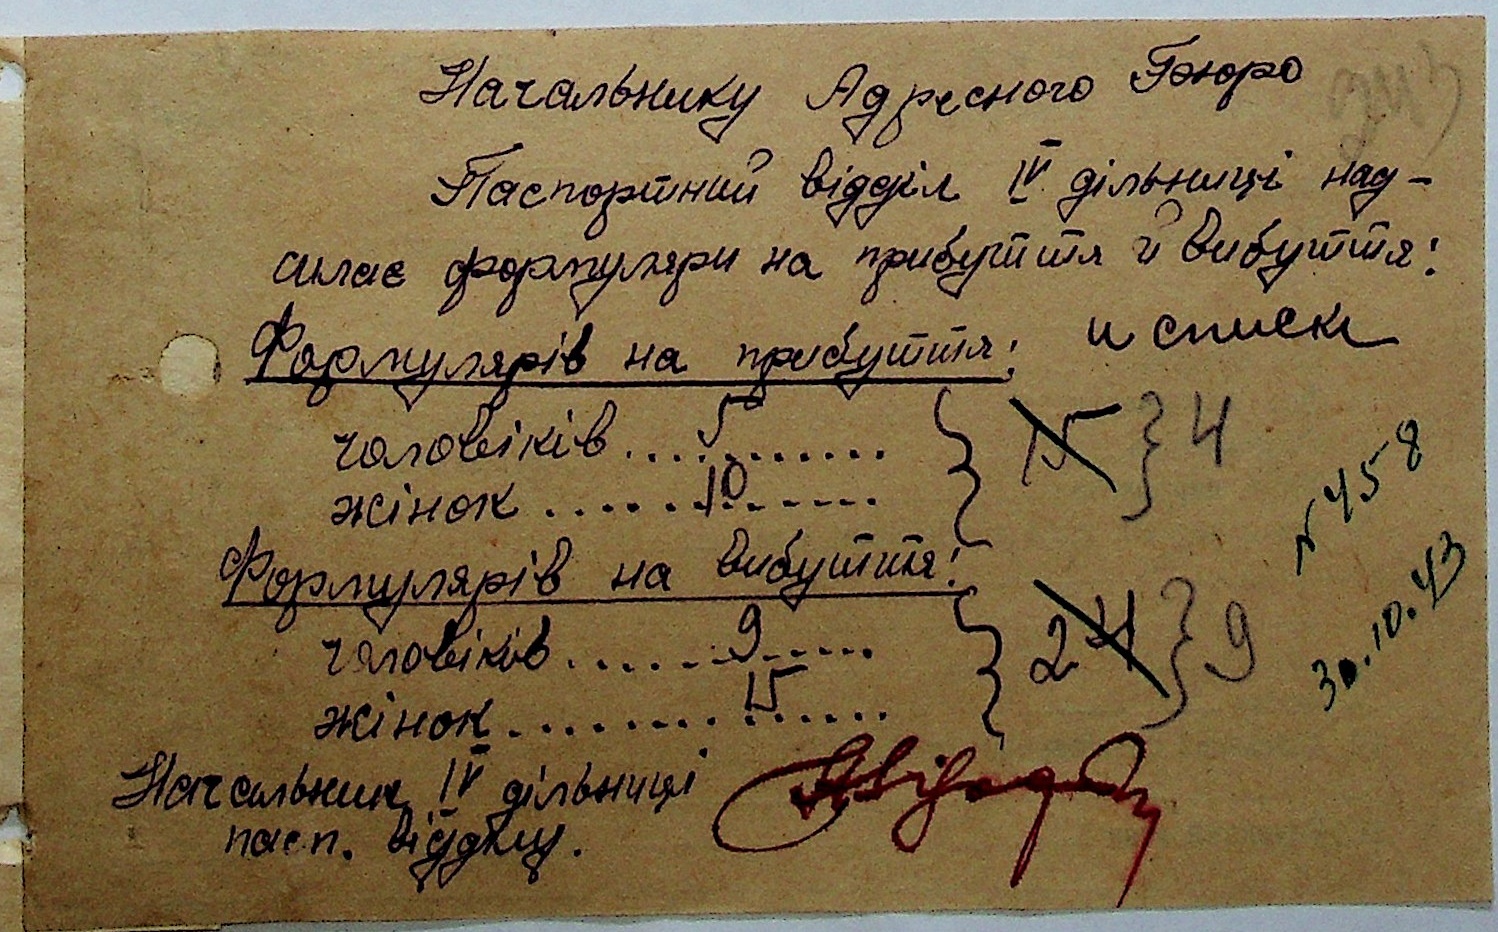 Начальнику Адресного Бюро
Паспортний відділ IV дільниці над-
силає формуляри на прибуття й вибуття:
Формулярів на прибуття: и списки
чоловіків ... 5 ...
15 } 4
жінок ... 10 ...
№ 458
Формулярів на вибуття:
30.10.43
чоловіків ... 9 ...
24 } 9
жінок ... 15 ...
Начальник IV дільниці
пасп. відділу.